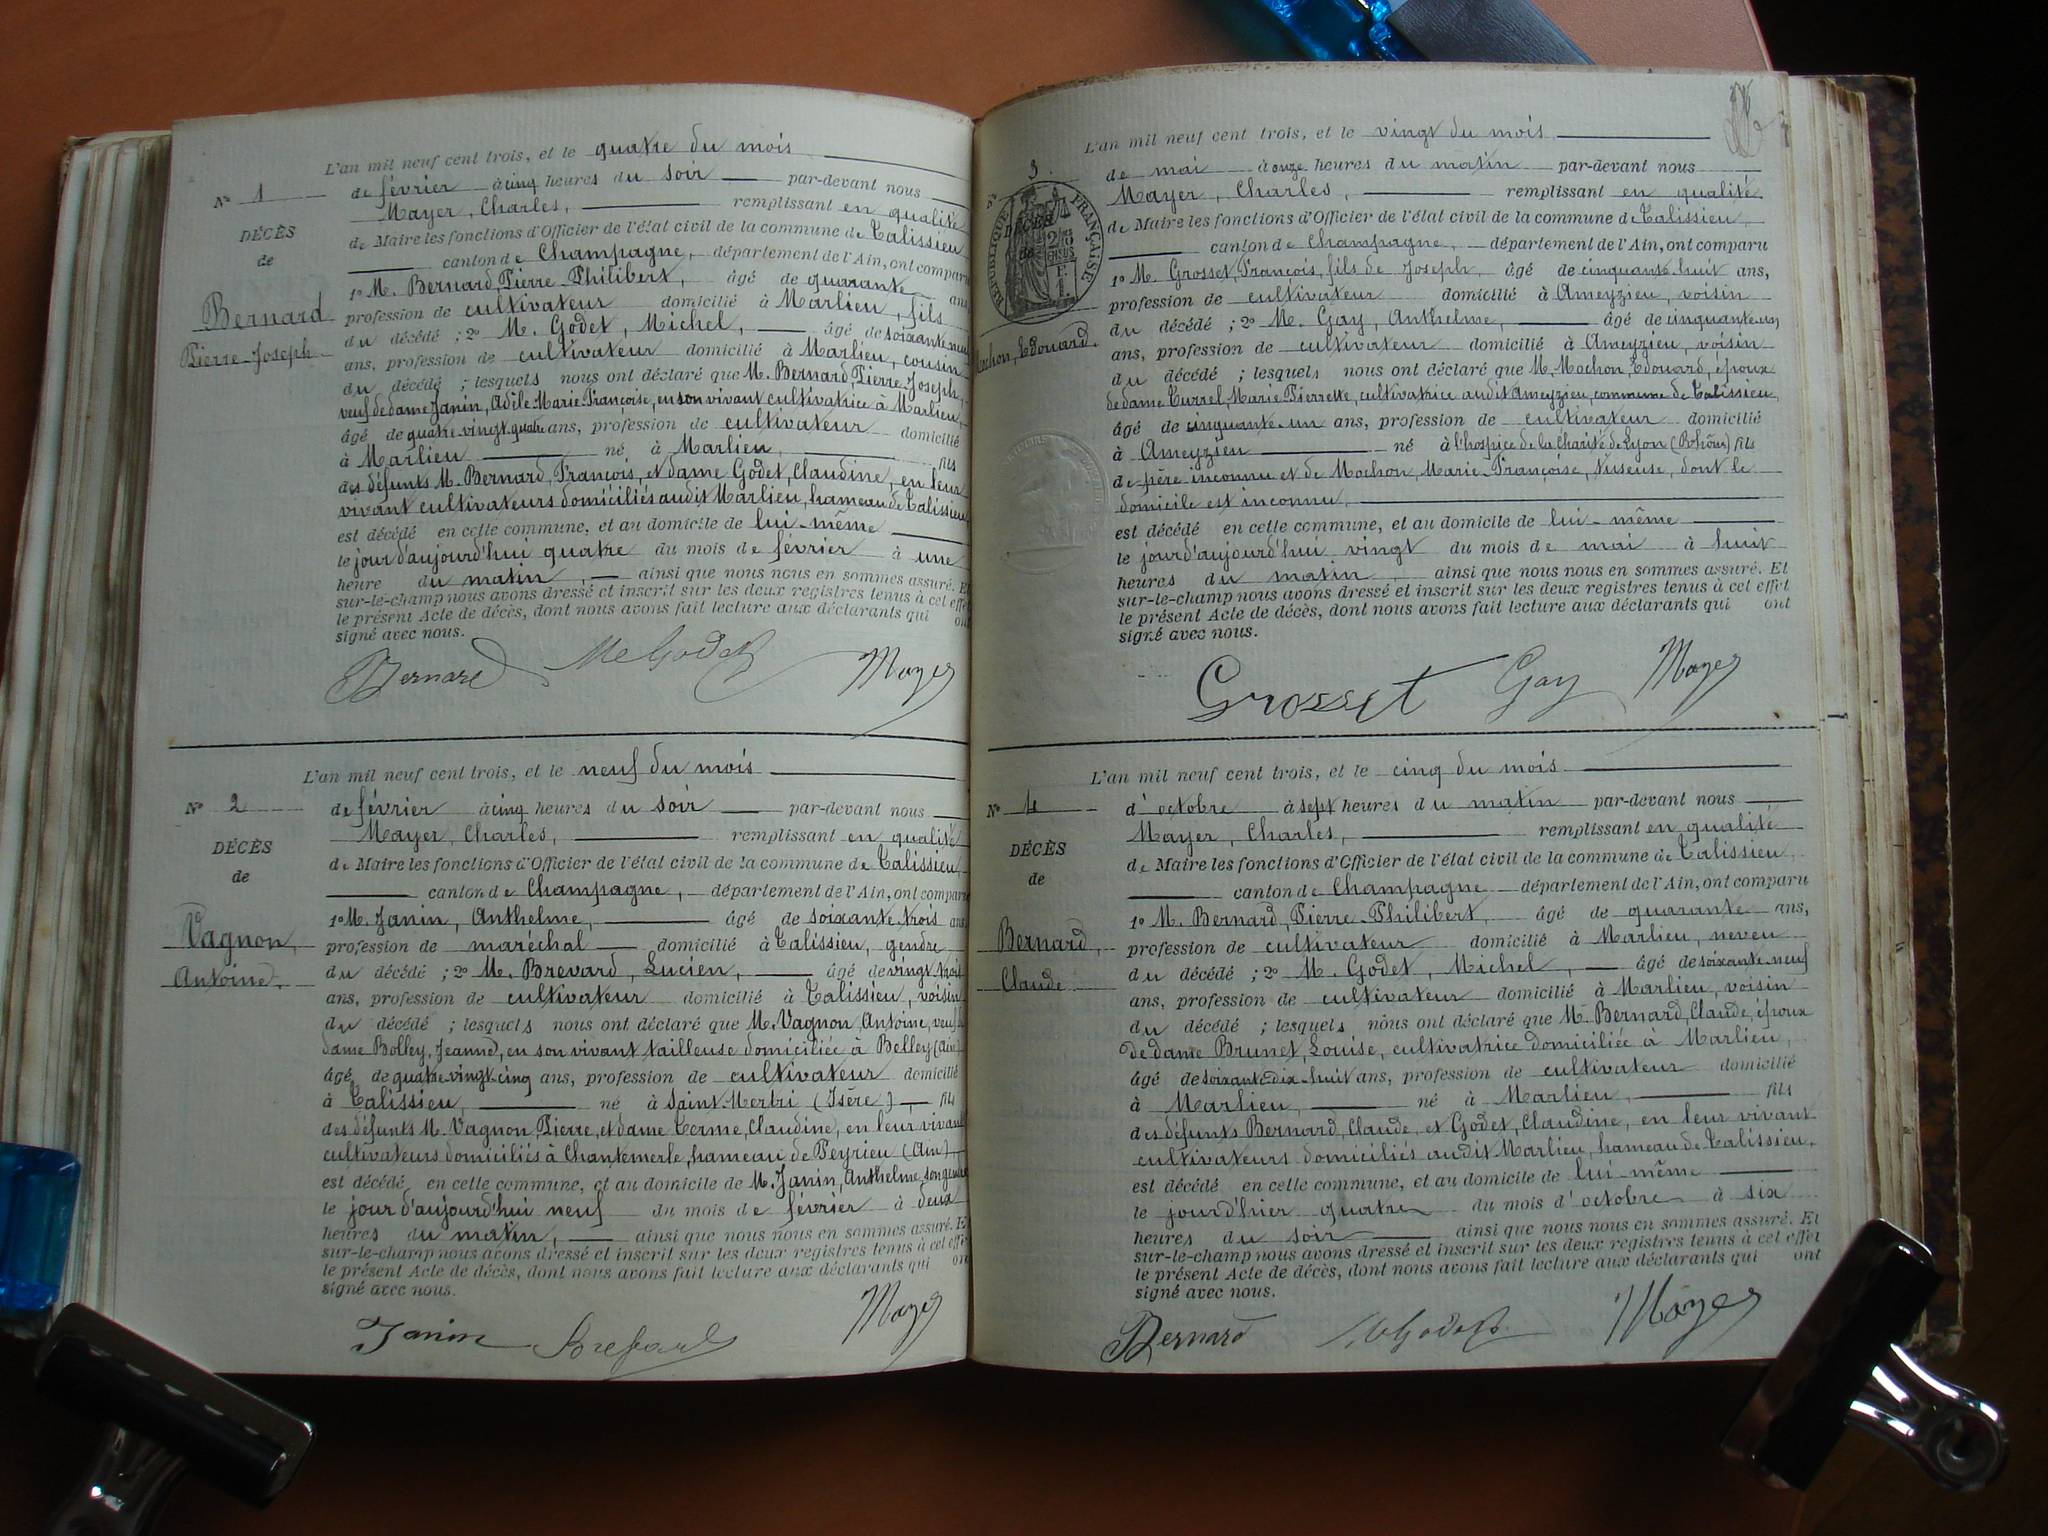 L'an mil neuf cent trois, et le quatre du mois
Nº 1
de février à cinq heures du soir par-devant nous
Mayer, Charles, remplissant en qualité
DÉCÈS
de Maire les fonctions d'Officier de l'état civil de la commune de Talissieu
de
canton de Champagne, département de l'Ain, ont comparu
1º M. Bernard, Pierre-Philibert, âgé de quarante ans
Bernard
profession de cultivateur domicilié à Marlieu, fils
du décédé ; 2º M. Godet, Michel, âgé de soixante-neuf
Pierre-Joseph
ans, profession de cultivateur domicilié à Marlieu, cousin
du décédé ; lesquels nous ont déclaré que M. Bernard, Pierre-Joseph,
veuf de dame Janin, Adèle-Marie-Françoise, en son vivant cultivatrice à Marlieu,
âgé de quatre-vingt-quatre ans, profession de cultivateur domicilié
à Marlieu né à Marlieu, fils
des défunts M. Bernard, François, et dame Godet, Claudine, en leur
vivant cultivateurs domiciliés audit Marlieu, hameau de Talissieu,
est décédé en cette commune, et au domicile de lui-même
le jour d'aujourd'hui quatre du mois de février à une
heure du matin, ainsi que nous nous en sommes assuré. Et
sur-le-champ nous avons dressé et inscrit sur les deux registres tenus à cet effet
le présent Acte de décès, dont nous avons fait lecture aux déclarants qui ont
signé avec nous.
Bernard Me Godet Mayer
L'an mil neuf cent trois, et le neuf du mois
Nº 2
de février à cinq heures du soir par-devant nous
Mayer, Charles, remplissant en qualité
DÉCÈS
de Maire les fonctions d'Officier de l'état civil de la commune de Talissieu,
de
canton de Champagne, département de l'Ain, ont comparu
1º M. Janin, Anthelme, âgé de soixante-trois ans
Vagnon,
profession de maréchal domicilié à Talissieu, gendre
Antoine.
du décédé ; 2º M. Brevard, Lucien, âgé de vingt-trois
ans, profession de cultivateur domicilié à Talissieu, voisin
du décédé ; lesquels nous ont déclaré que M. Vagnon, Antoine, veuf de
dame Bolley, Jeanne, en son vivant tailleuse domiciliée à Belley (Ain)
âgé de quatre-vingt-cinq ans, profession de cultivateur domicilié
à Talissieu, né à Saint-Mertri (Isère) fils
des défunts M. Vagnon, Pierre, et dame Terme, Claudine, en leur vivant
cultivateurs domiciliés à Chantemerle, hameau de Peyrieu (Ain)
est décédé en cette commune, et au domicile de M. Janin, Anthelme, son gendre
le jour d'aujourd'hui neuf du mois de février à deux
heures du matin, ainsi que nous nous en sommes assuré. Et
sur-le-champ nous avons dressé et inscrit sur les deux registres tenus à cet effet
le présent Acte de décès, dont nous avons fait lecture aux déclarants qui ont
signé avec nous.
Janin Brevard Mayer
L'an mil neuf cent trois, et le vingt du mois
Nº 3.
de mai à onze heures du matin par-devant nous
Mayer, Charles, remplissant en qualité
DÉCÈS
RÉPUBLIQUE FRANÇAISE
de Maire les fonctions d'Officier de l'état civil de la commune de Talissieu,
de
canton de Champagne, département de l'Ain, ont comparu
1º M. Grosset, François, fils de Joseph, âgé de cinquante-huit ans,
profession de cultivateur domicilié à Ameyzieu, voisin
du décédé ; 2º M. Gay, Anthelme, âgé de cinquante-un
Machon, Edouard.
ans, profession de cultivateur domicilié à Ameyzieu, voisin
du décédé ; lesquels nous ont déclaré que M. Machon, Edouard, époux
de dame Turrel, Marie-Pierrette, cultivatrice audit Ameyzieu, commune de Talissieu,
âgé de cinquante-un ans, profession de cultivateur domicilié
à Ameyzieu né à l'hospice de la Charité de Lyon (Rhône) fils
de père inconnu et de Machon, Marie-Françoise, tisseuse, dont le
domicile est inconnu,
est décédé en cette commune, et au domicile de lui-même
le jour d'aujourd'hui vingt du mois de mai à huit
heures du matin, ainsi que nous nous en sommes assuré. Et
sur-le-champ nous avons dressé et inscrit sur les deux registres tenus à cet effet
le présent Acte de décès, dont nous avons fait lecture aux déclarants qui ont
signé avec nous.
Grosset Gay Mayer
L'an mil neuf cent trois, et le cinq du mois
Nº 4
d'octobre à sept heures du matin par-devant nous
Mayer, Charles, remplissant en qualité
DÉCÈS
de Maire les fonctions d'Officier de l'état civil de la commune de Talissieu,
de
canton de Champagne département de l'Ain, ont comparu
1º M. Bernard, Pierre-Philibert, âgé de quarante ans,
Bernard,
profession de cultivateur domicilié à Marlieu, neveu
Claude
du décédé ; 2º M. Godet, Michel, âgé de soixante-neuf
ans, profession de cultivateur domicilié à Marlieu, voisin
du décédé ; lesquels nous ont déclaré que M. Bernard, Claude, époux
de dame Brunet, Louise, cultivatrice domiciliée à Marlieu,
âgé de soixante-dix-huit ans, profession de cultivateur domicilié
à Marlieu, né à Marlieu, fils
des défunts Bernard, Claude, et Godet, Claudine, en leur vivant
cultivateurs domiciliés audit Marlieu, hameau de Talissieu.
est décédé en cette commune, et au domicile de lui-même
le jour d'hier quatre du mois d'octobre à six
heures du soir ainsi que nous nous en sommes assuré. Et
sur-le-champ nous avons dressé et inscrit sur les deux registres tenus à cet effet
le présent Acte de décès, dont nous avons fait lecture aux déclarants qui ont
signé avec nous.
Bernard Me Godet Mayer